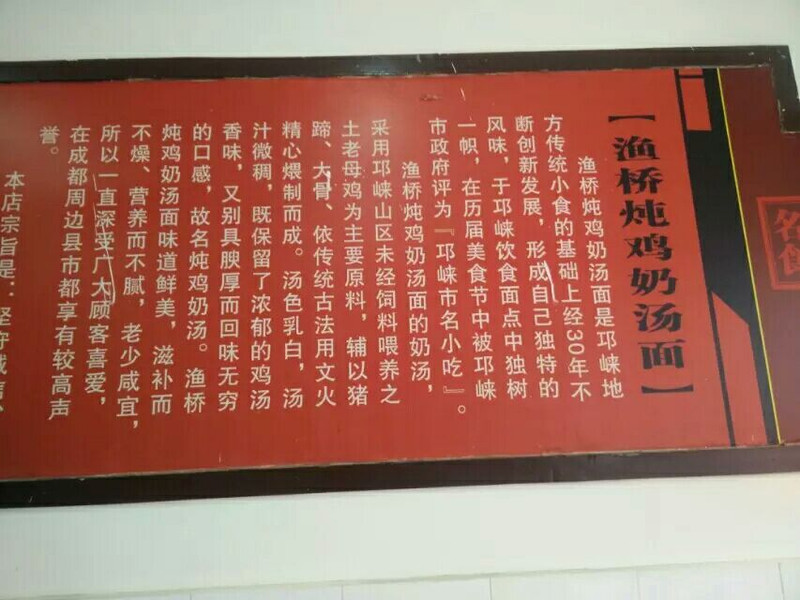 名食
【渔桥炖鸡奶汤面】
渔桥炖鸡奶汤面是邛崃地
方传统小食的基础上经30年不
断创新发展，形成自己独特的
风味，于邛崃饮食面点中独树
一帜，在历届美食节中被邛崃
市政府评为『邛崃市名小吃』。
渔桥炖鸡奶汤面的奶汤，
采用邛崃山区未经饲料喂养之
土老母鸡为主要原料，辅以猪
蹄、大骨、依传统古法用文火
精心煨制而成。汤色乳白，汤
汁微稠，既保留了浓郁的鸡汤
香味，又别具腴厚而回味无穷
的口感，故名炖鸡奶汤。渔桥
炖鸡奶汤面味道鲜美，滋补而
不燥、营养而不腻，老少咸宜，
所以一直深受广大顾客喜爱，
在成都周边县市都享有较高声
誉。
本店宗旨是：坚守诚信、